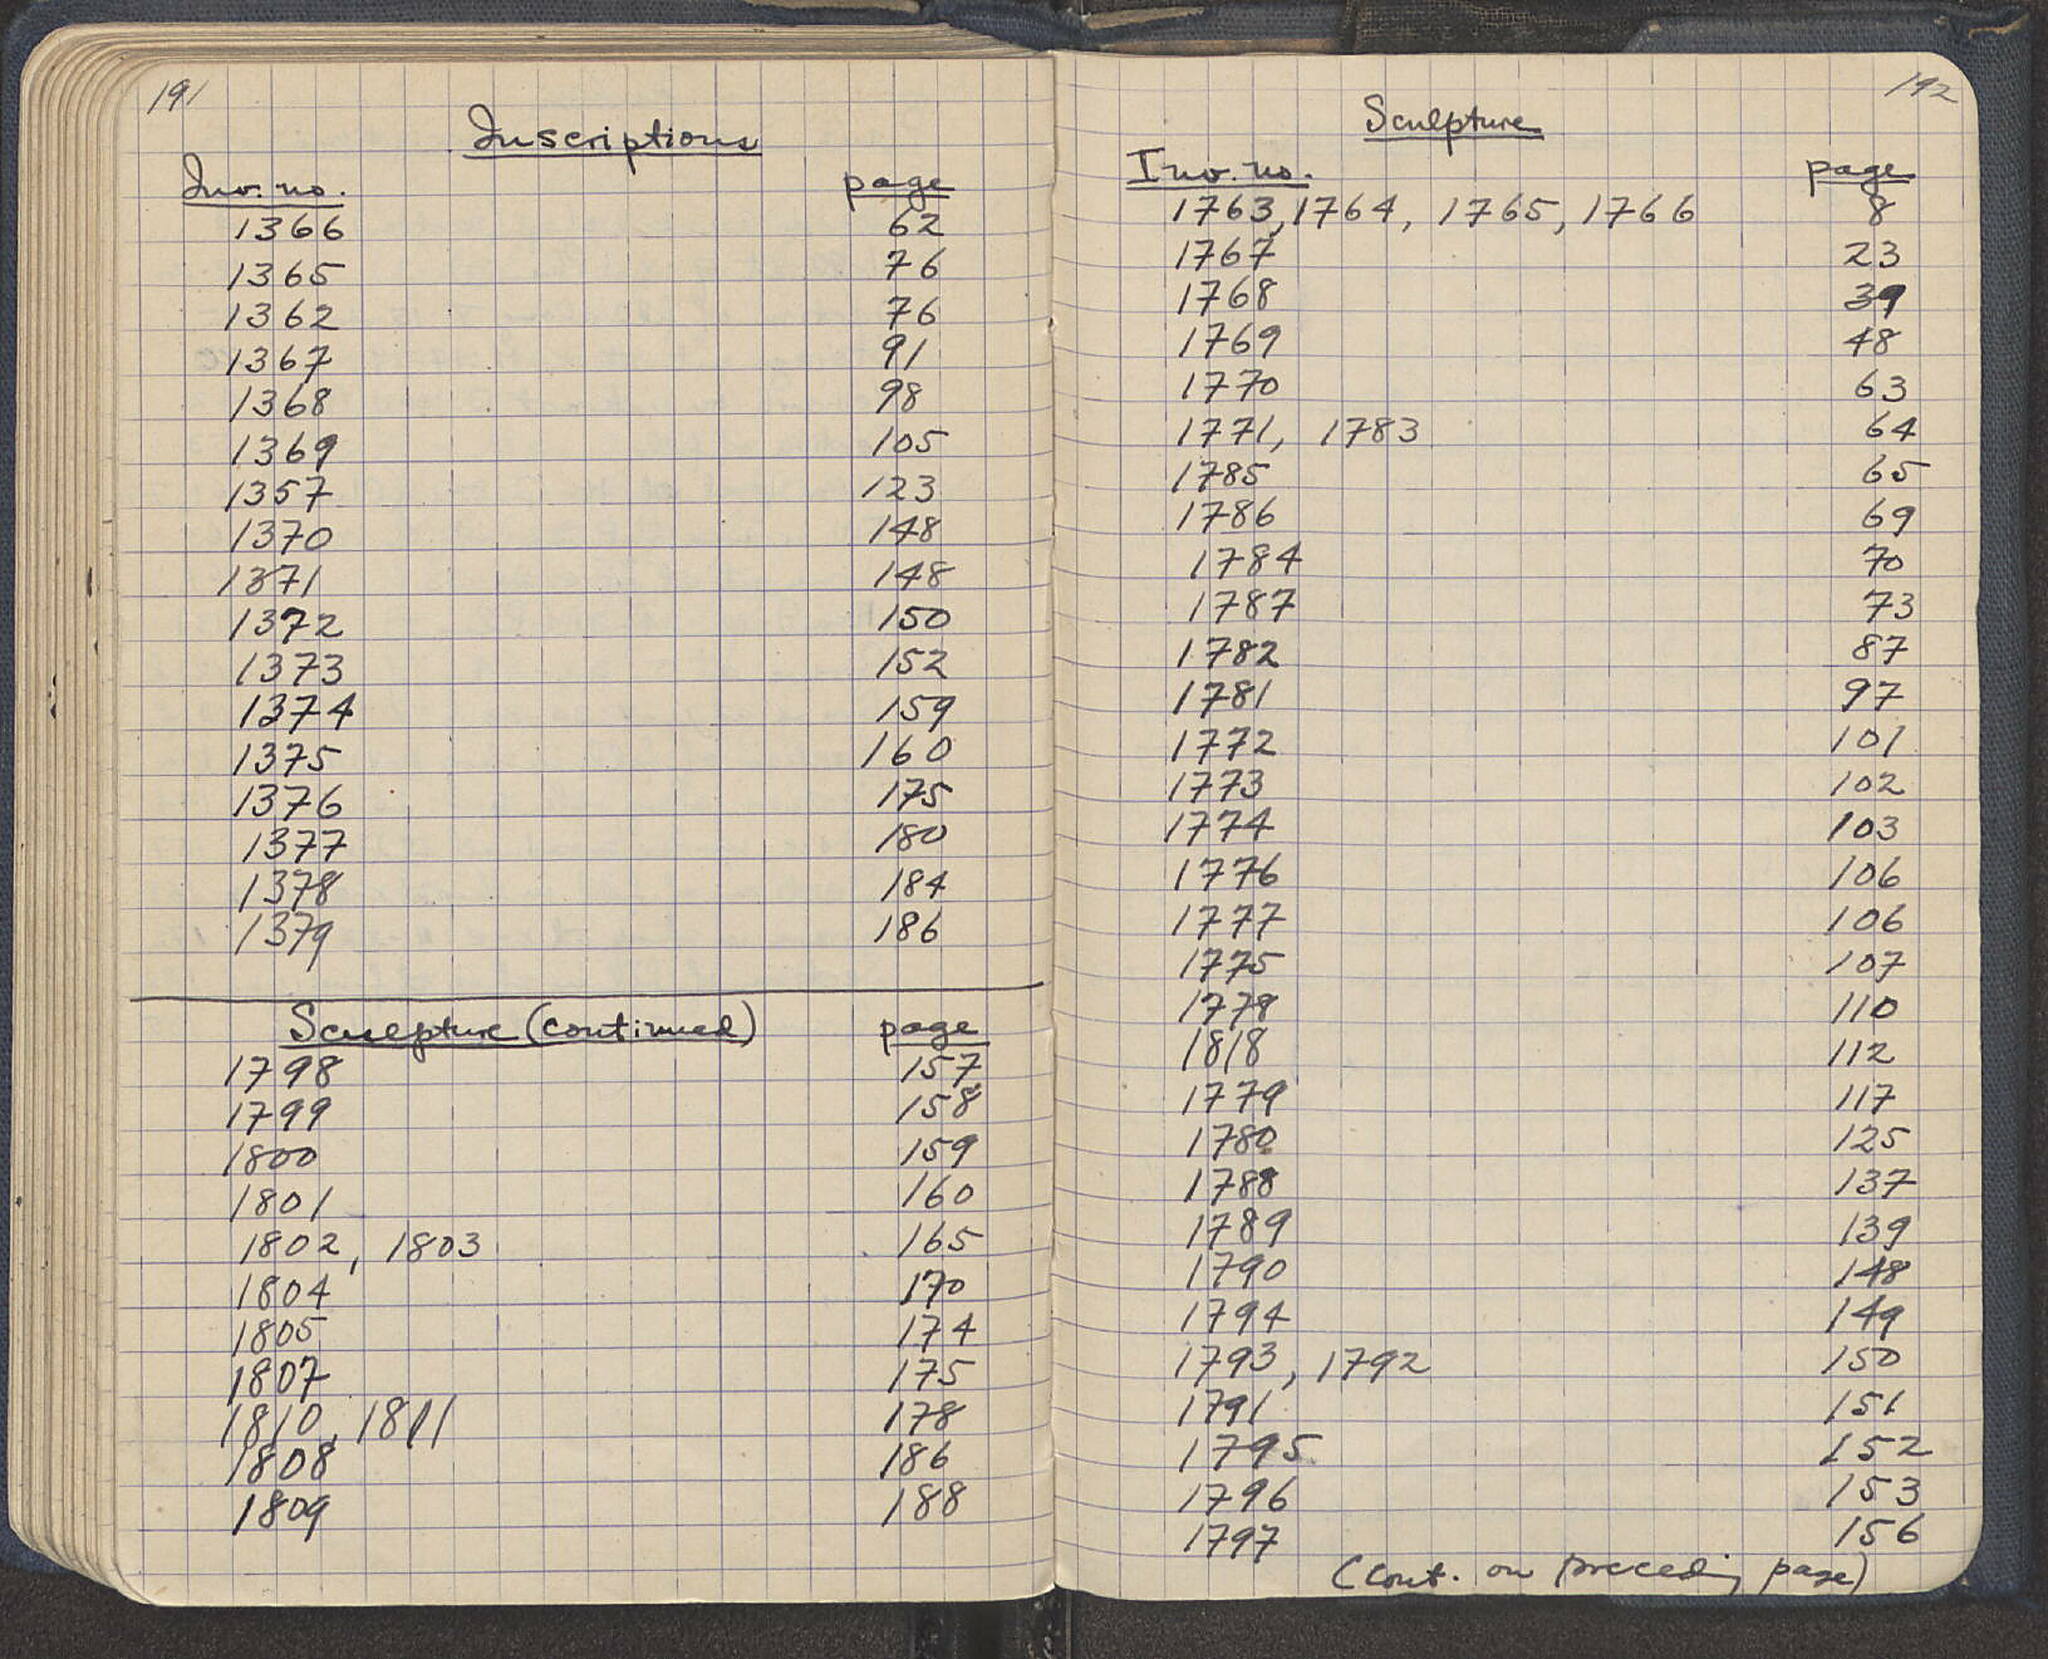 191
Inscriptions
Inv. no. page
1366 62
1365 76
1362 76
1367 91
1368 98
1369 105
1357 123
1370 148
1371 148
1372 150
1373 152
1374 159
1375 160
1376 175
1377 180
1378 184
1379 186
Sculpture (continued) page
1798 157
1799 158
1800 159
1801 160
1802, 1803 165
1804 170
1805 174
1807 175
1810, 1811 178
1808 186
1809 188
192
Sculpture
Inv. no. page
1763, 1764, 1765, 1766 8
1767 23
1768 39
1769 48
1770 63
1771, 1783 64
1785 65
1786 69
1784 70
1787 73
1782 87
1781 97
1772 101
1773 102
1774 103
1776 106
1777 106
1775 107
1778 110
1818 112
1779 117
1780 125
1788 137
1789 139
1790 148
1794 149
1793, 1792 150
1791 151
1795 152
1796 153
1797 156
(cont. on preceding page)